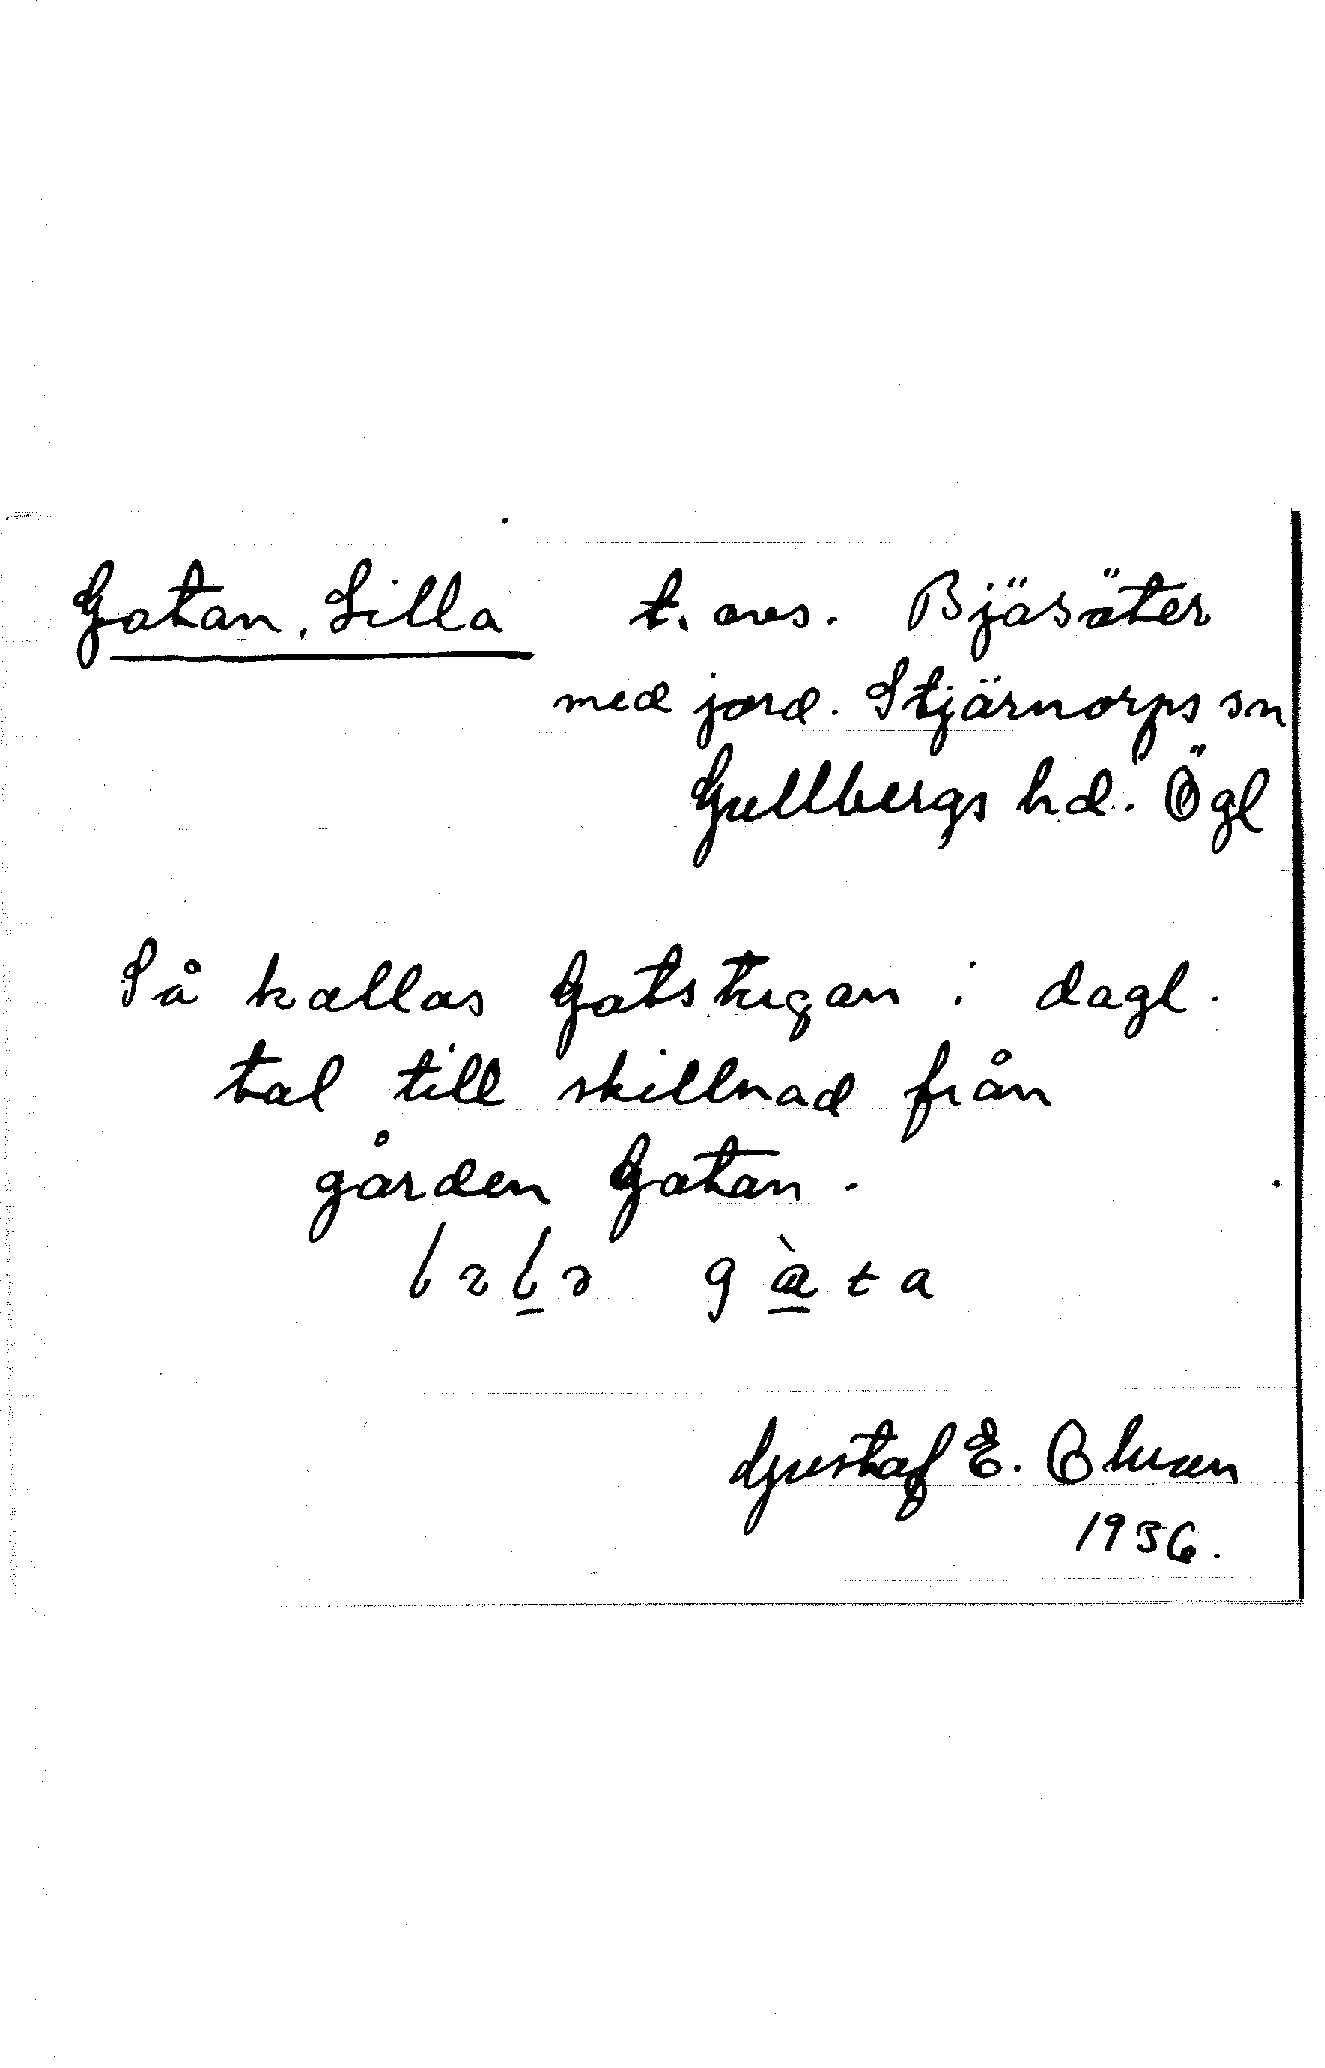 Gatan, Lilla t. avs. Bjäsäter
med jord. Stjärnorps sn
Gullbergs hd. Ögl
Så kallas Gatstugan i dagl.
tal till skillnad från
gården Gatan.
gàta
Gustaf E. Ohman
1936.